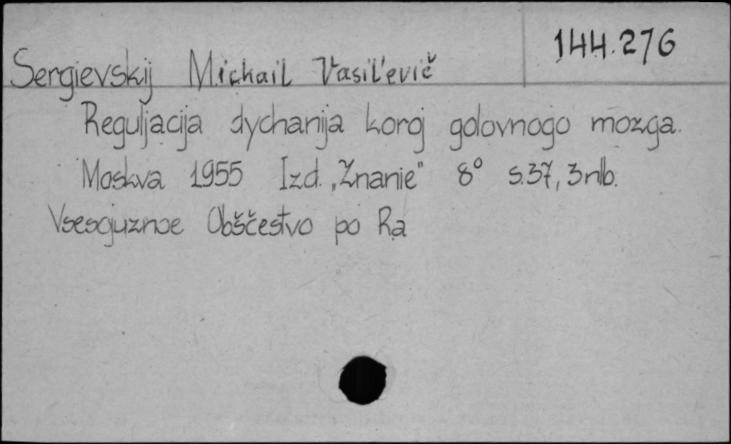 144.276
Sergievskij Michail Vasil'evič
Reguljacija dychanija koroj golovnogo mozga.
Moskva 1955 Izd. „Znanie" 8° s.37, 3 nlb.
Vsesojuznoe Obščestvo po Ra